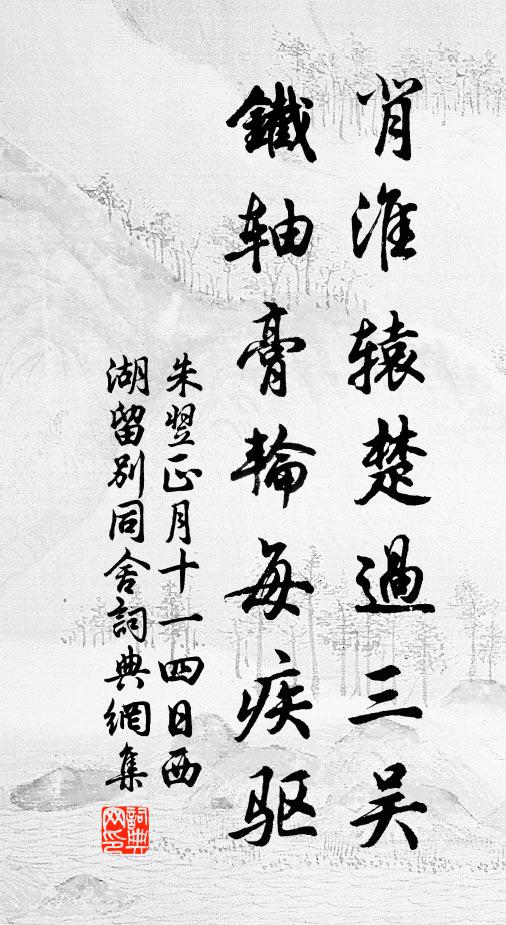 背淮辕楚過三吴
鐵轴膏輪每疾驱
朱翌正月十一四日西
湖留別同舍詞典網集
詞典
网印